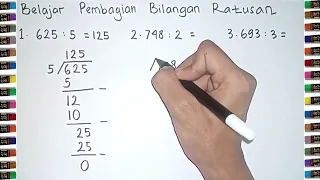 Belajar Pembagian Bilangan Ratusan
1. 625 : 5 = 125 2. 748 : 2 = 3. 693 : 3 =
125
5 625
5 –
12
10 –
25
25 –
0